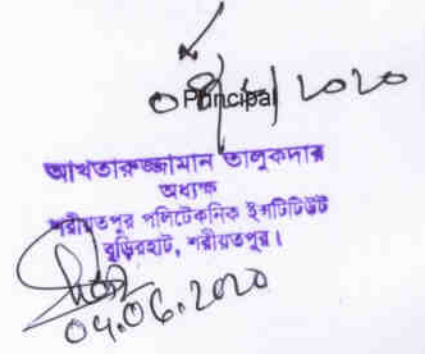 Principal ২০২০
আখতারুজ্জামান তালুকদার
অধ্যক্ষ
শরীয়তপুর পলিটেকনিক ইন্সটিটিউট
বুড়িরহাট, শরীয়তপুর।
04.06.2020